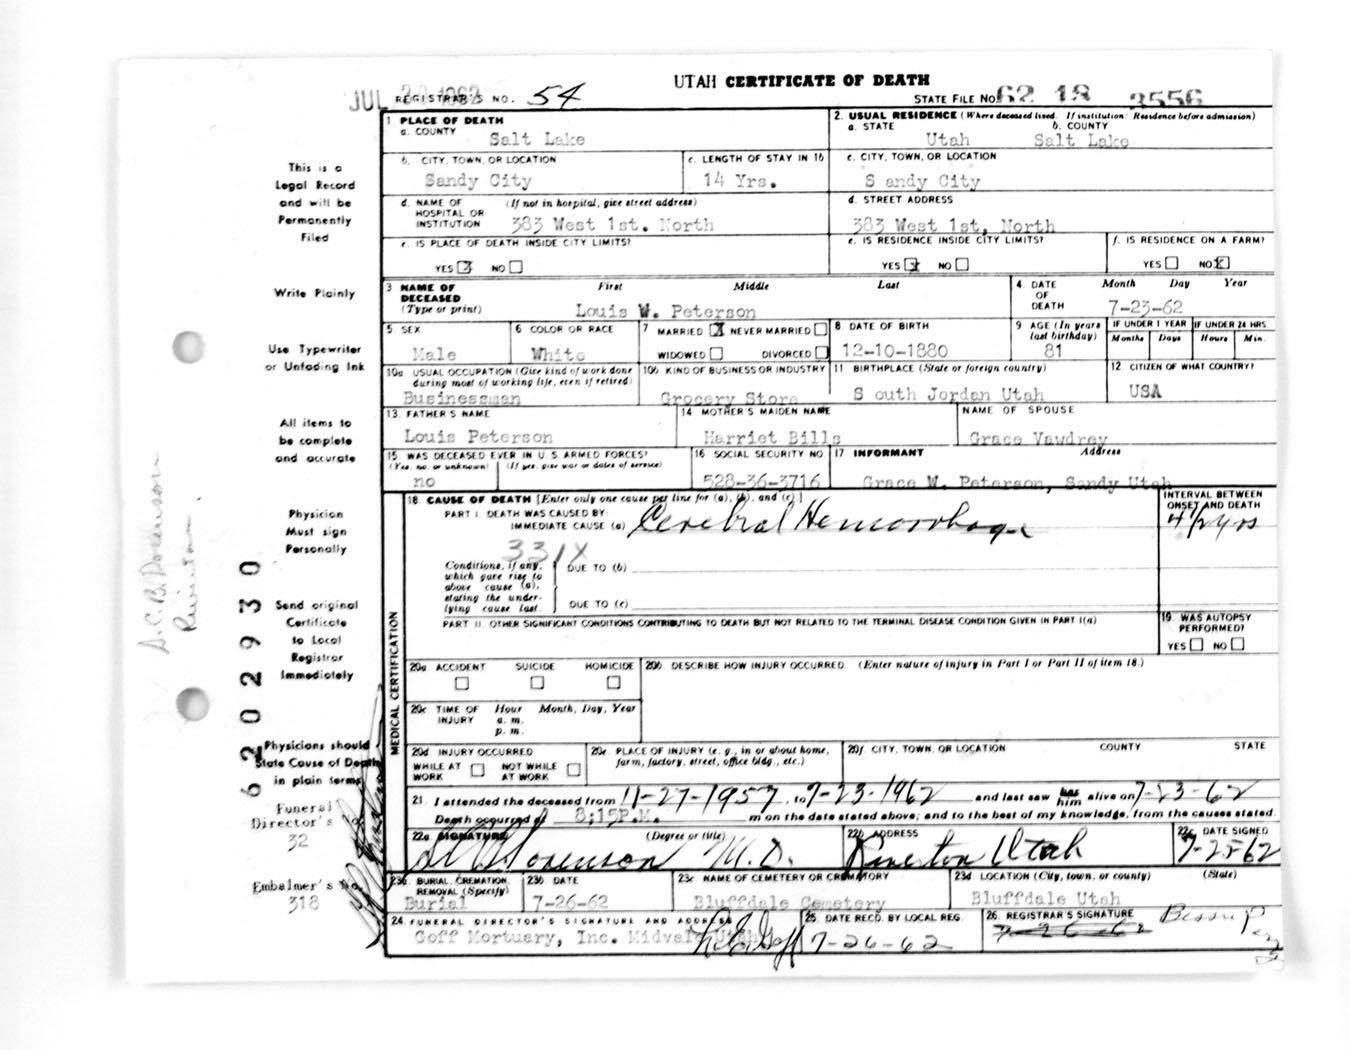 UTAH CERTIFICATE OF DEATH
JUL 30 1962 REGISTRAR'S NO. 54 STATE FILE NO. 62 18 3556
1 PLACE OF DEATH
a. COUNTY Salt Lake
2. USUAL RESIDENCE (Where deceased lived. If institution: Residence before admission)
a. STATE Utah b. COUNTY Salt Lake
b. CITY, TOWN, OR LOCATION Sandy City
c. LENGTH OF STAY IN 1b 14 Yrs.
c. CITY, TOWN, OR LOCATION S andy City
d. NAME OF HOSPITAL OR INSTITUTION (If not in hospital, give street address) 383 West 1st. North
d. STREET ADDRESS 383 West 1st, North
e. IS PLACE OF DEATH INSIDE CITY LIMITS?
YES X NO
e. IS RESIDENCE INSIDE CITY LIMITS?
YES X NO
f. IS RESIDENCE ON A FARM?
YES NO X
3 NAME OF DECEASED (Type or print) First Middle Last
Louis W. Peterson
4. DATE OF DEATH Month Day Year
7-23-62
5. SEX Male
6 COLOR OR RACE White
7 MARRIED X NEVER MARRIED
WIDOWED DIVORCED
8 DATE OF BIRTH 12-10-1880
9 AGE (In years last birthday) 81
IF UNDER 1 YEAR Months Days
IF UNDER 24 HRS. Hours Min.
10a USUAL OCCUPATION (Give kind of work done during most of working life, even if retired) Businessman
10b KIND OF BUSINESS OR INDUSTRY Grocery Store
11 BIRTHPLACE (State or foreign country) S outh Jordan Utah
12 CITIZEN OF WHAT COUNTRY? USA
13. FATHER'S NAME Louis Peterson
14 MOTHER'S MAIDEN NAME Harriet Bills
NAME OF SPOUSE Grace Vawdrey
15 WAS DECEASED EVER IN U.S. ARMED FORCES?
(Yes, no, or unknown) (If yes, give war or dates of service)
no
16 SOCIAL SECURITY NO 528-36-3716
17 INFORMANT Address
Grace W. Peterson, Sandy Utah
18 CAUSE OF DEATH [Enter only one cause per line for (a), (b), and (c).]
PART I. DEATH WAS CAUSED BY:
IMMEDIATE CAUSE (a) Cerebral Hemorrhage
INTERVAL BETWEEN ONSET AND DEATH
4 1/2 yrs
331X
Conditions, if any, which gave rise to above cause (a), stating the underlying cause last.
DUE TO (b)
DUE TO (c)
PART II. OTHER SIGNIFICANT CONDITIONS CONTRIBUTING TO DEATH BUT NOT RELATED TO THE TERMINAL DISEASE CONDITION GIVEN IN PART I(a)
19. WAS AUTOPSY PERFORMED?
YES NO
MEDICAL CERTIFICATION
20a. ACCIDENT SUICIDE HOMICIDE
20b. DESCRIBE HOW INJURY OCCURRED. (Enter nature of injury in Part I or Part II of item 18.)
20c TIME OF INJURY Hour Month, Day, Year
a. m.
p. m.
20d INJURY OCCURRED
WHILE AT WORK NOT WHILE AT WORK
20e. PLACE OF INJURY (e. g., in or about home, farm, factory, street, office bldg., etc.)
20f. CITY, TOWN, OR LOCATION COUNTY STATE
21. I attended the deceased from 11-27-1957, to 7-23-1962 and last saw him alive on 7-23-62
Death occurred at 8:15P.M. m on the date stated above; and to the best of my knowledge, from the causes stated.
22a SIGNATURE (Degree or title) Sorenson M.D.
22b ADDRESS Riverton Utah
22c DATE SIGNED 7-25-62
23a BURIAL, CREMATION, REMOVAL (Specify) Burial
23b DATE 7-26-62
23c NAME OF CEMETERY OR CREMATORY Bluffdale Cemetery
23d. LOCATION (City, town, or county) (State) Bluffdale Utah
24 FUNERAL DIRECTOR'S SIGNATURE AND ADDRESS
Goff Mortuary, Inc. Midvale Utah
25. DATE RECD. BY LOCAL REG. 7-26-62
26. REGISTRAR'S SIGNATURE
7-26-62
This is a
Legal Record
and will be
Permanently
Filed
Write Plainly
Use Typewriter
or Unfading Ink
All items to
be complete
and accurate
Physician
Must sign
Personally
Send original
Certificate
to Local
Registrar
Immediately
Physicians should
State Cause of Death
in plain terms
Funeral
Director's No.
32
Embalmer's No.
318
62 02930
Riverton